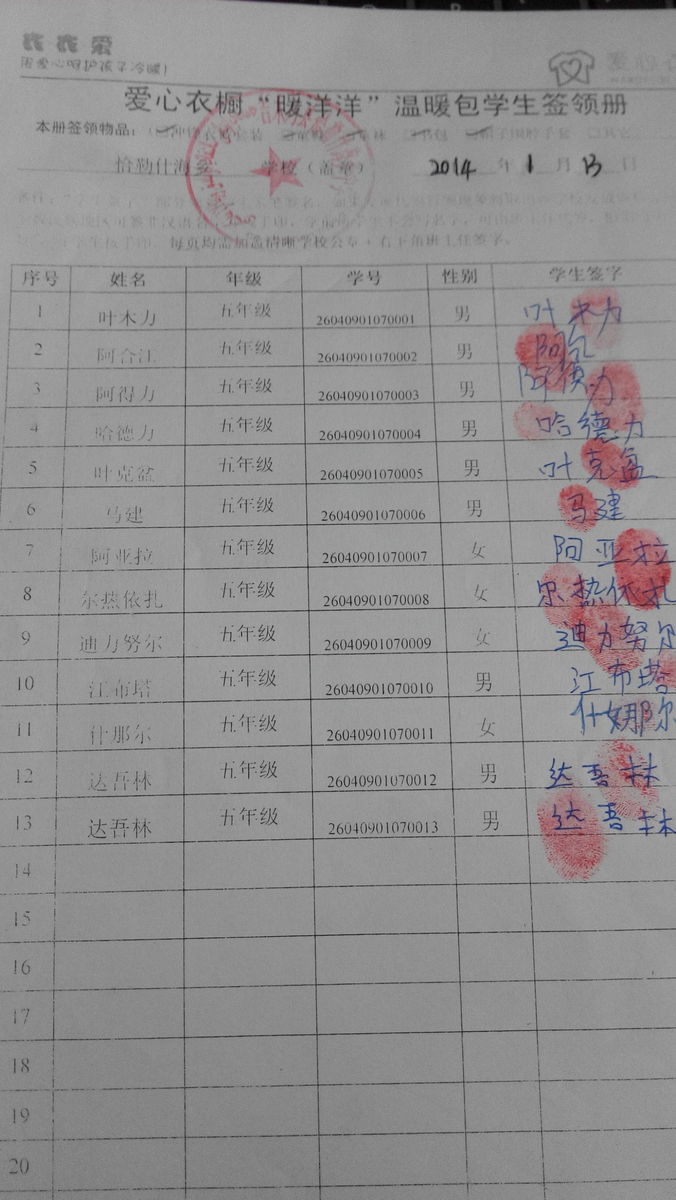 衣衣爱
用爱心呵护孩子冷暖!
爱心衣橱“暖洋洋”温暖包学生签领册
本册签领物品:
恰勒什海乡 学校(盖章) 2014 年 1 月 13 日
每页均需加盖清晰学校公章+右下角班主任签字。
序号 姓名 年级 学号 性别 学生签字
1 叶木力 五年级 26040901070001 男 叶木力
2 阿合江 五年级 26040901070002 男
3 阿得力 五年级 26040901070003 男
4 哈德力 五年级 26040901070004 男 哈德力
5 叶克盆 五年级 26040901070005 男 叶克盆
6 马建 五年级 26040901070006 男 马建
7 阿亚拉 五年级 26040901070007 女 阿亚拉
8 尔热依扎 五年级 26040901070008 女
9 迪力努尔 五年级 26040901070009 女 迪力努尔
10 江布塔 五年级 26040901070010 男 江布塔
11 什那尔 五年级 26040901070011 女 什娜尔
12 达吾林 五年级 26040901070012 男 达吾林
13 达吾林 五年级 26040901070013 男 达吾林
14
15
16
17
18
19
20